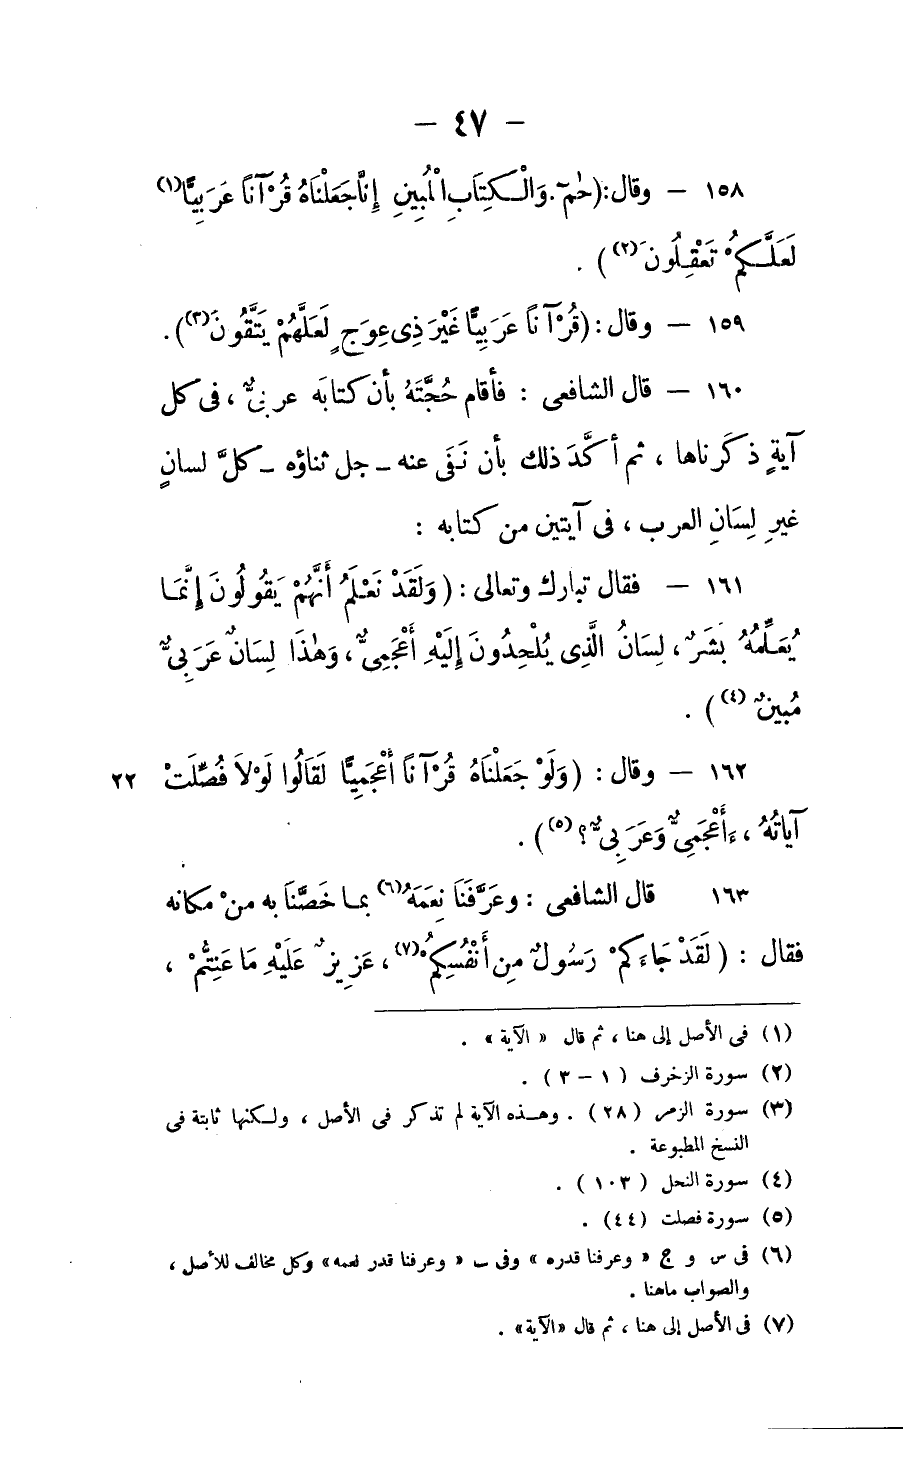 — ٤٧ —
١٥٨ — وقال: (حٰمٓ. وَالْكِتَابِ الْمُبِينِ إِنَّا جَعَلْنَاهُ قُرْآنًا عَرَبِيًّا(١)
لَعَلَّكُمْ تَعْقِلُونَ(٢)) .
١٥٩ — وقال: (قُرْآنًا عَرَبِيًّا غَيْرَ ذِى عِوَجٍ لَعَلَّهُمْ يَتَّقُونَ(٣)).
١٦٠ — قال الشافعى : فأقام حُجَّتَهُ بأن كتابَه عربىٌّ ، فى كل
آيةٍ ذكَرناها ، ثم أكَّدَ ذلك بأن نَفَى عنه ـ جل ثناؤه ـ كلَّ لسانٍ
غيرِ لِسَانِ العرب ، فى آيتين من كتابه :
١٦١ — فقال تبارك وتعالى : ( وَلَقَدْ نَعْلَمُ أَنَّهُمْ يَقُولُونَ إِنَّمَا
يُعَلِّمُهُ بَشَرٌ ، لِسَانُ الَّذِى يُلْحِدُونَ إِلَيْهِ أَعْجَمِىٌّ ، وَهٰذَا لِسَانٌ عَرَبِىٌّ
مُبِينٌ(٤)) .
١٦٢ — وقال : ( وَلَوْ جَعَلْنَاهُ قُرْآنًا أَعْجَمِيًّا لَقَالُوا لَوْلاَ فُصِّلَتْ ٢٢
آيَاتُهُ ، ءَأَعْجَمِىٌّ وَعَرَبِىٌّ؟(٥)) .
١٦٣ قال الشافعى : وعَرَّفَنَا نِعَمَهُ(٦) بما خَصَّنَا به منْ مكانه
فقال : ( لَقَدْ جَاءَكُمْ رَسُولٌ مِنْ أَنْفُسِكُمْ(٧) ، عَزِيزٌ عَلَيْهِ مَا عَنِتُّمْ ،
(١) فى الأصل إلى هنا ، ثم قال « الآية » .
(٢) سورة الزخرف ( ١ – ٣ ) .
(٣) سورة الزمر ( ٢٨ ) . وهذه الآية لم تذكر فى الأصل ، ولكنها ثابتة فى
النسخ المطبوعة .
(٤) سورة النحل ( ١٠٣ ) .
(٥) سورة فصلت (٤٤) .
(٦) فى س و ج « وعرفنا قدره » وفى ب « وعرفنا قدر نعمه» وكل مخالف للأصل ،
والصواب ماهنا .
(٧) فى الأصل إلى هنا ، ثم قال «الآية» .